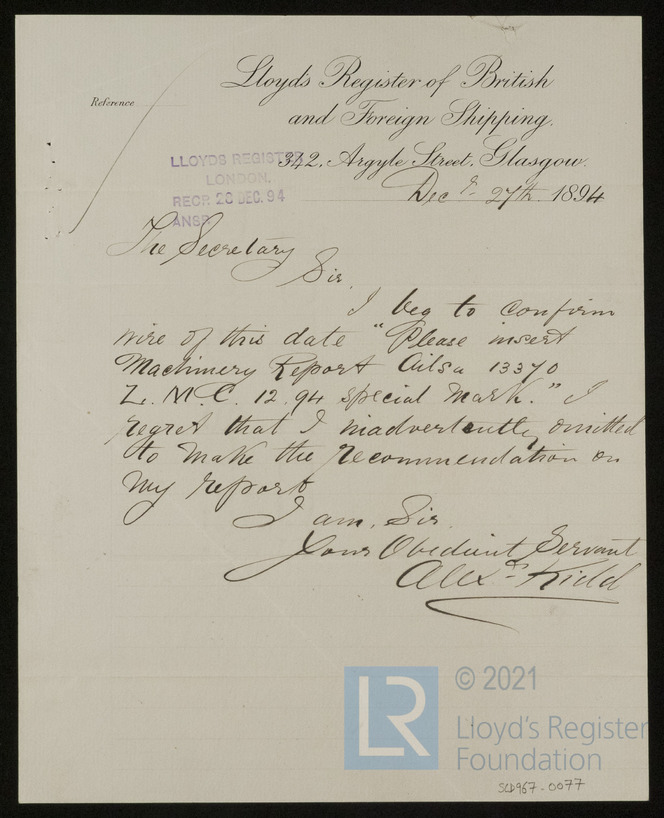 Lloyds Register of British
and Foreign Shipping.
Reference
342, Argyle Street, Glasgow.
LLOYDS REGISTER
LONDON.
RECR. 28 DEC. 94
ANSR.
Decr. 27th. 1894
The Secretary
Sir,
I beg to confirm
wire of this date "Please insert
Machinery Report Ailsa 13370
L.M.C. 12.94 special mark." I
regret that I inadvertently omitted
to make the recommendation on
my report
I am, Sir.
Your Obedient Servant
Alexr. Kidd
LR
© 2021
Lloyd's Register
Foundation
SLD967-0077